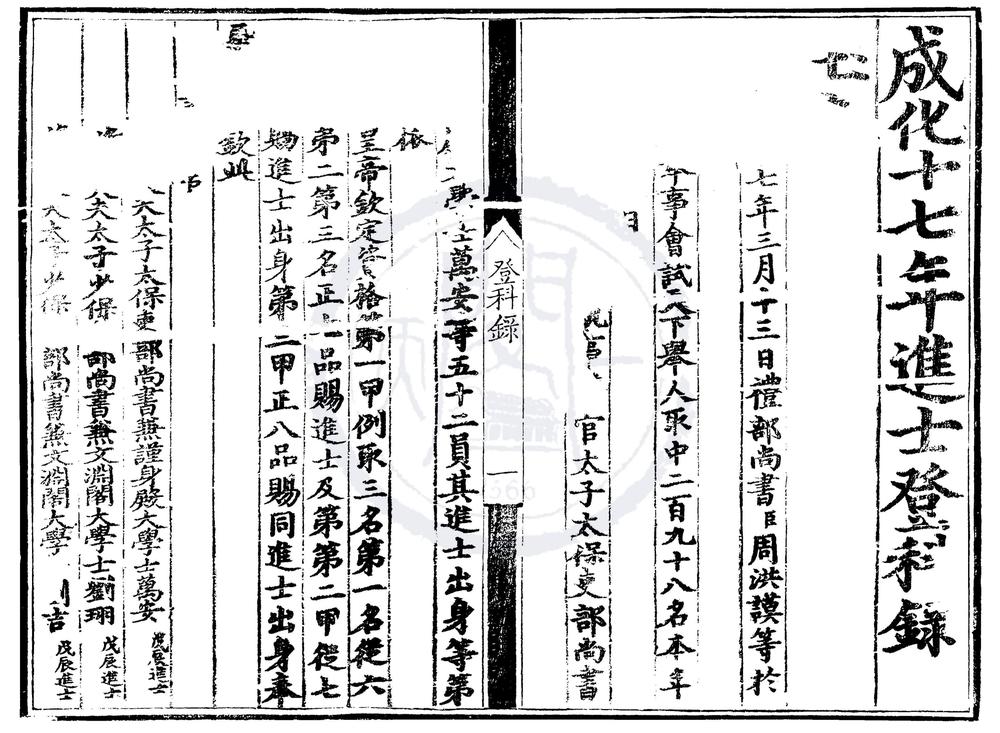 成化十七年進士登科錄
七
七年三月十三日禮部尚書臣周洪謨等於
事會試天下舉人取中二百九十八名本年
官太子太保吏部尚書
登科錄 一
學士萬安等五十二員其進士出身等第
依
皇帝欽定資格第一甲例取三名第一名從六
第二第三名正七品賜進士及第第二甲從七
賜進士出身第三甲正八品賜同進士出身奉
欽此
大夫太子太保吏部尚書兼謹身殿大學士萬安 戊辰進士
大夫太子少保 部尚書兼文淵閣大學士劉珝 戊辰進士
大夫太子少保 部尚書兼文淵閣大學 吉 戊辰進士